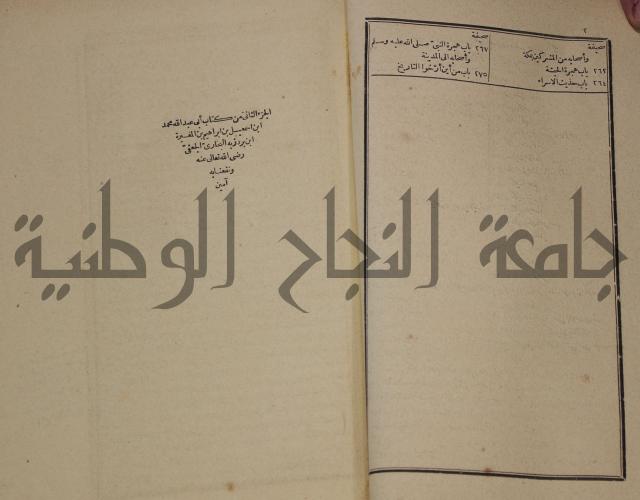 ٢
صحيفة
وأصحابه من المشركين بمكة
٢٦٢ باب هجرة الحبشة
٢٦٤ باب حديث الاسراء
صحيفة
٢٦٧ باب هجرة النبي صلى الله عليه وسلم
وأصحابه الى المدينة
٢٧٥ باب من أين أرّخوا التاريخ
الجزء الثاني من كتاب أبي عبد الله محمد
ابن اسمعيل بن ابراهيم بن المغيرة
ابن بردزبه البخاري الجعفي
رضى الله تعالى عنه
ونفعنا به
آمين
جامعة النجاح الوطنية